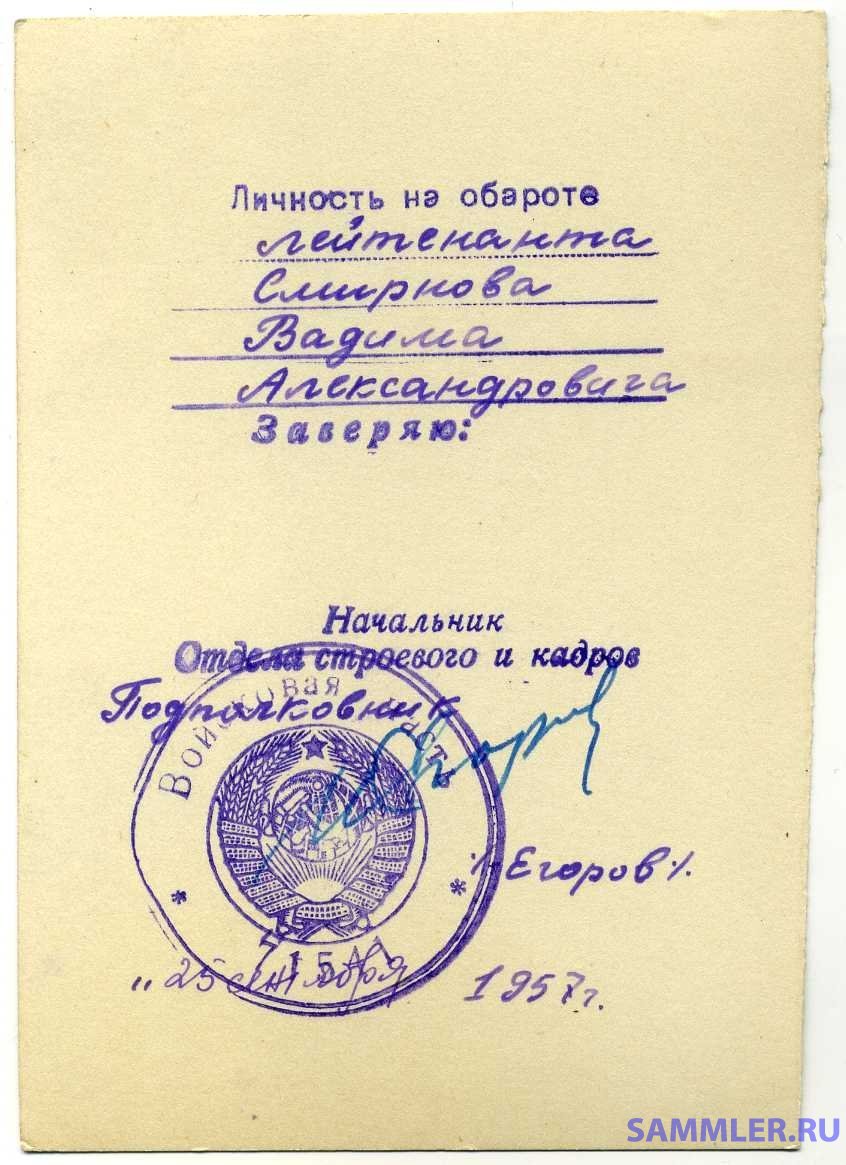 Личность на обароте
лейтенанта
Смирнова
Вадима
Александровича
Заверяю:
Начальник
Отдела строевого и кадров
Подполковник
Войсковая часть
/Егоров/.
„25 сентября 1957г.
SAMMLER.RU